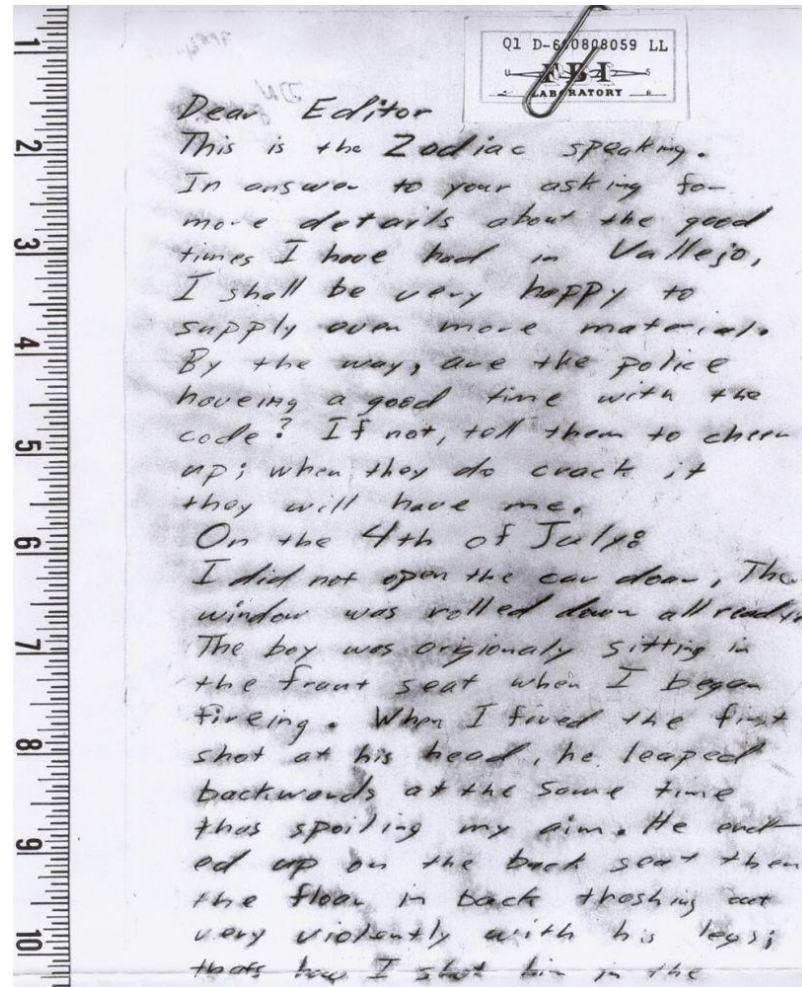 Q1 D-690808059 LL
U S
FBI
LABORATORY
Dear Editor
This is the Zodiac speaking.
In answer to your asking for
more details about the good
times I have had in Vallejo,
I shall be very happy to
supply even more material.
By the way, are the police
haveing a good time with the
code? If not, tell them to cheer
up; when they do crack it
they will have me.
On the 4th of July:
I did not open the car door, The
window was rolled down all ready
The boy was origionaly sitting in
the frount seat when I began
fireing. When I fired the first
shot at his head, he leaped
backwards at the same time
thus spoiling my aim. He end-
ed up on the back seat then
the floor in back thashing out
very violently with his legs;
thats how I shot him in the
1
2
3
4
5
6
7
8
9
10